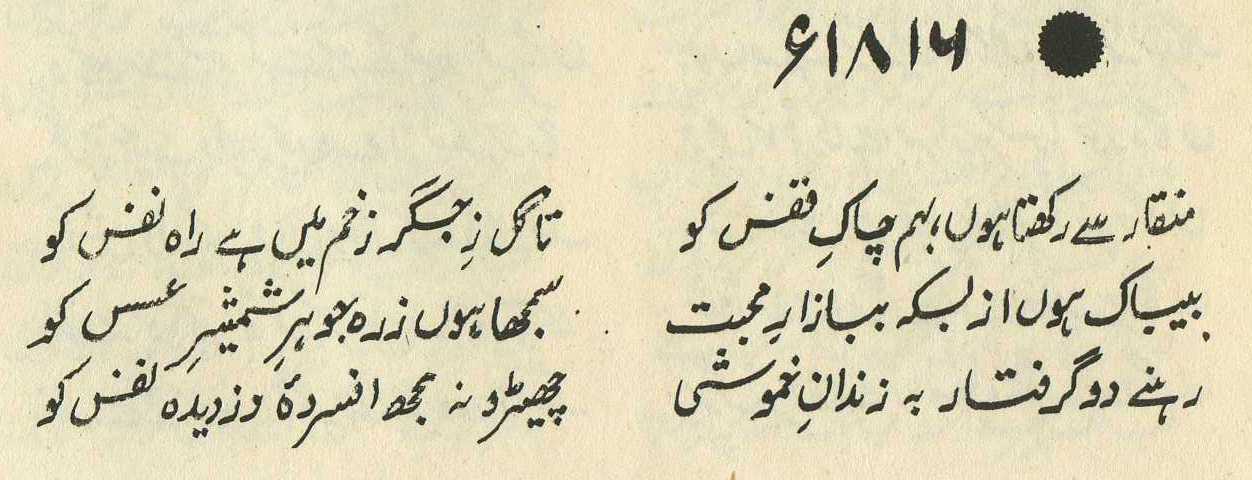 ۱۸۱۶ء
منقار سے رکھتا ہوں، بہم چاکِ قفس کو تا گل زِ جگر زخم میں ہے راہ نفس کو
بیباک ہوں از بسکہ ببازارِ محبت سمجھا ہوں زرہ جوہرِ شمشیرِ عسس کو
رہنے دو گرفتار بہ زندانِ خموشی چھیڑو نہ مجھ افسردۂ دزدیدہ نفس کو